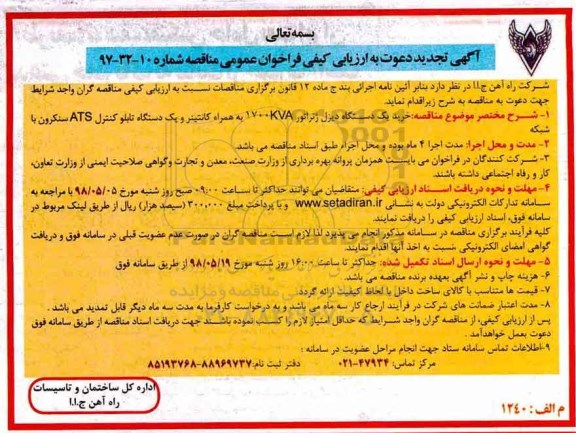 بسمه‌تعالی
آگهی تجدید دعوت به ارزیابی کیفی فراخوان عمومی مناقصه شماره ۱۰-۳۲-۹۷
شرکت راه آهن ج.ا.ا در نظر دارد بنابر آئین نامه اجرائی بند ج ماده ۱۲ قانون برگزاری مناقصات نسبت به ارزیابی کیفی مناقصه گران واجد شرایط
جهت دعوت به مناقصه به شرح زیر اقدام نماید.
۱- شرح مختصر موضوع مناقصه: خرید یک دستگاه دیزل ژنراتور ۱۷۰۰KVA به همراه کانتینر و یک دستگاه تابلو کنترل ATS سنکرون با
شبکه
۲- مدت و محل اجرا: مدت اجرا ۴ ماه بوده و محل اجراء طبق اسناد مناقصه می باشد.
۳- شرکت کنندگان در فراخوان می بایست همزمان پروانه بهره برداری از وزارت صنعت، معدن و تجارت وگواهی صلاحیت ایمنی از وزارت تعاون،
کار و رفاه اجتماعی داشته باشند.
۴- مهلت و نحوه دریافت اسناد ارزیابی کیفی: متقاضیان می توانند حداکثر تا ساعت ۰۹:۰۰ صبح روز شنبه مورخ ۹۸/۰۵/۰۵ با مراجعه به
سامانه تدارکات الکترونیکی دولت به نشانی www.setadiran.ir و با پرداخت مبلغ ۳۰۰.۰۰۰ (سیصد هزار) ریال از طریق لینک مربوط در
سامانه فوق، اسناد ارزیابی کیفی را دریافت نمایند.
کلیه فرآیند برگزاری مناقصه در سامانه مذکور انجام می پذیرد لذا لازم است مناقصه گران در صورت عدم عضویت قبلی در سامانه فوق و دریافت
گواهی امضای الکترونیکی نسبت به اخذ آنها اقدام نمایند.
۵- مهلت و نحوه ارسال اسناد تکمیل شده: حداکثر تا ساعت ۱۶:۰۰ روز شنبه مورخ ۹۸/۰۵/۱۹ از طریق سامانه فوق
۶- هزینه چاپ و نشر آگهی بعهده برنده مناقصه می باشد.
۷- قیمت ها متناسب با کالای ساخت داخل با لحاظ کیفیت ارائه گردد.
۸- مدت اعتبار ضمانت های شرکت در فرآیند ارجاع کار سه ماه می باشد و به درخواست کارفرما به مدت سه ماه دیگر قابل تمدید می باشد.
پس از ارزیابی کیفی، از مناقصه گران واجد شرایط که حداقل امتیاز لازم را کسب نموده باشند جهت دریافت اسناد مناقصه از طریق سامانه فوق
دعوت بعمل خواهد آمد.
۹- اطلاعات تماس سامانه ستاد جهت انجام مراحل عضویت در سامانه :
مرکز تماس: ۴۷۹۳۴-۰۲۱ دفتر ثبت نام: ۸۸۹۶۹۷۳۷-۸۵۱۹۳۷۶۸
اداره کل ساختمان و تاسیسات
راه آهن ج.ا.ا
م الف : ۱۲۴۰